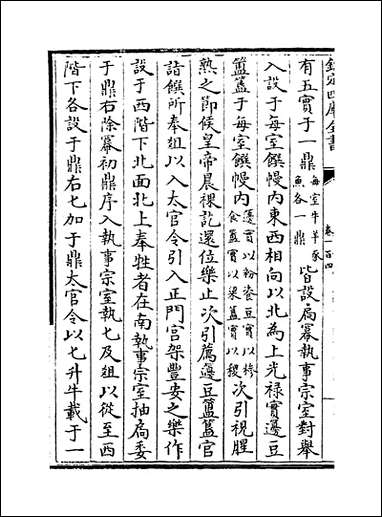 欽定四庫全書
卷一百四
有五實于一鼎每室牛羊豕魚各一鼎皆設扃冪執事宗室對舉
入設于每室饌幔內東西相向以北為上光禄實籩豆
簠簋于每室饌幔內籩實以粉餈豆實以糝食簠實以粱簋實以稷次引視腥
熟之節俟皇帝晨祼訖還位樂止次引薦籩豆簠簋官
詣饌所奉俎以入太官令引入正門宮架豐安之樂作
設于西階下北面北上奉牲者在南執事宗室抽扃委
于鼎右除冪初鼎序入執事宗室執匕及俎以從至西
階下各設于鼎右匕加于鼎太官令以匕升牛載于一